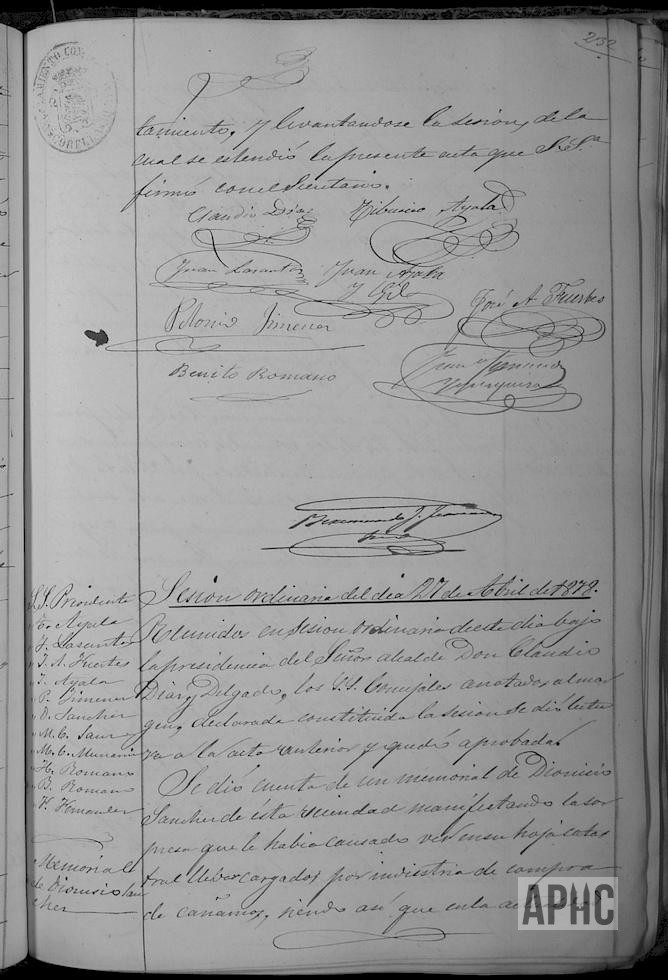 232
AYUNTAMIENTO CON
tamiento, y levantandose la sesion, de la
cual se estendió la presente acta que S. Sª
firmó con el Secretario.
Claudio Díaz Tiburcio Ayala
Juan Lasanta Juan Ayala
y Gil
José A Fuertes
Polonio Jimenez
Benito Romano
Sesion ordinaria del dia 27 de Abril de 1878.
S.S. Presidente
T. Ayala
J. Lasanta
J. A. Fuertes
J. Ayala
P. Jimenez
D. Sanchez
M. C.
M. C.
H. Romano
B. Romano
H. Hernandez
Reunidos en sesion ordinaria de este dia bajo
la presidencia del Señor alcalde Don Claudio
Diaz, Delgado, los S.S. Concejales anotados al mar
gen, declarada constituida la sesion se dió lectu
ra a la acta anterior y quedó aprobada.
Memorial
de Dionisio San
chez
Se dió cuenta de un memorial de Dionicio
Sanchez de ésta vecindad manifestando la sor
presa que le habia causado ver en su hoja catas
tral cargados por industria de compra
de cañamos, siendo asi que en la actualidad
APHC